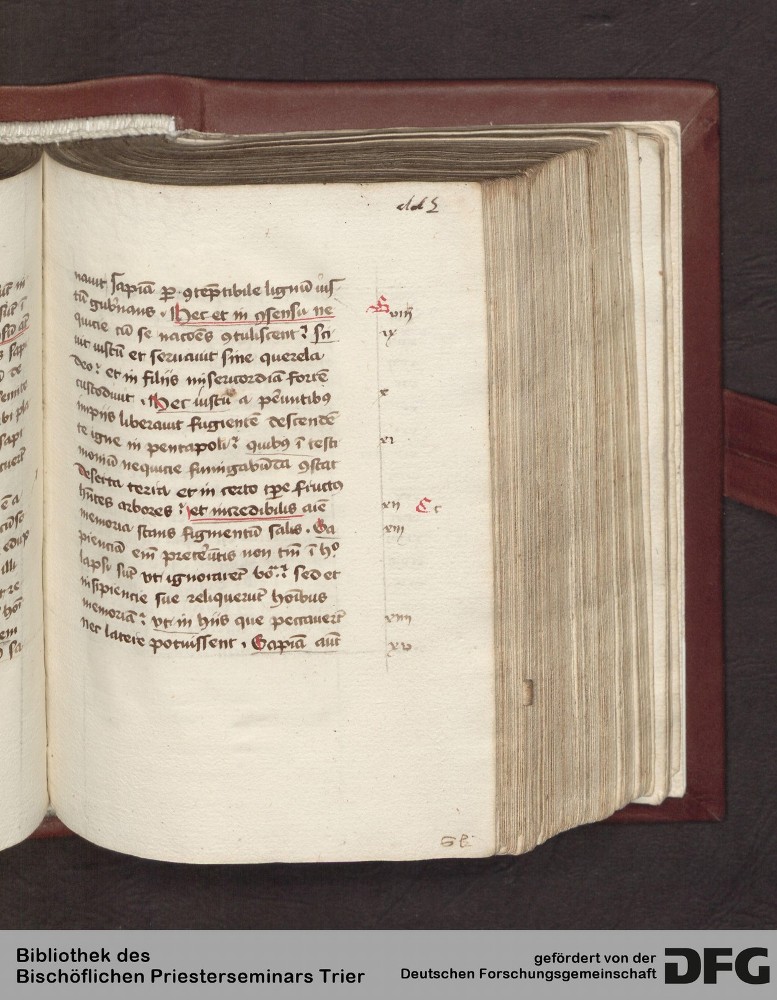 nauit sapiā ꝑ ꝯtēptibile lignū ius
tū gubnans . Hec et in ꝯsensu ne
quicie cū se nacōes ꝯtulissent : sci
uit iustū et seruauit sine querela
deo : et in filiis misericordiā fortē
custodiuit . Hec iustū a peūntibꝫ
impiis liberauit fugientē descendē
te igne in pentapoli : quibꝫ ī testi
moniū nequicie fumigabūda ꝯstat
deserta terra et in certo tꝑe fructꝫ
hn̄tes arbores : et incredibilis aīe
memoria stans figmentū salis . Sa
pienciā em̄ pretereūtis non tm̄ ī hͦ
lapsi sūt vt ignorarēt boͣ : sed et
insipiencie sue reliquerūt hoībus
memoriā : vt in hiis que peccauerūt
nec latere potuissent . Sapiā aūt
viii
ix
x
xi
xii
xiii
xiiii
xv
Bibliothek des
Bischöflichen Priesterseminars Trier
gefördert von der
Deutschen Forschungsgemeinschaft
DFG